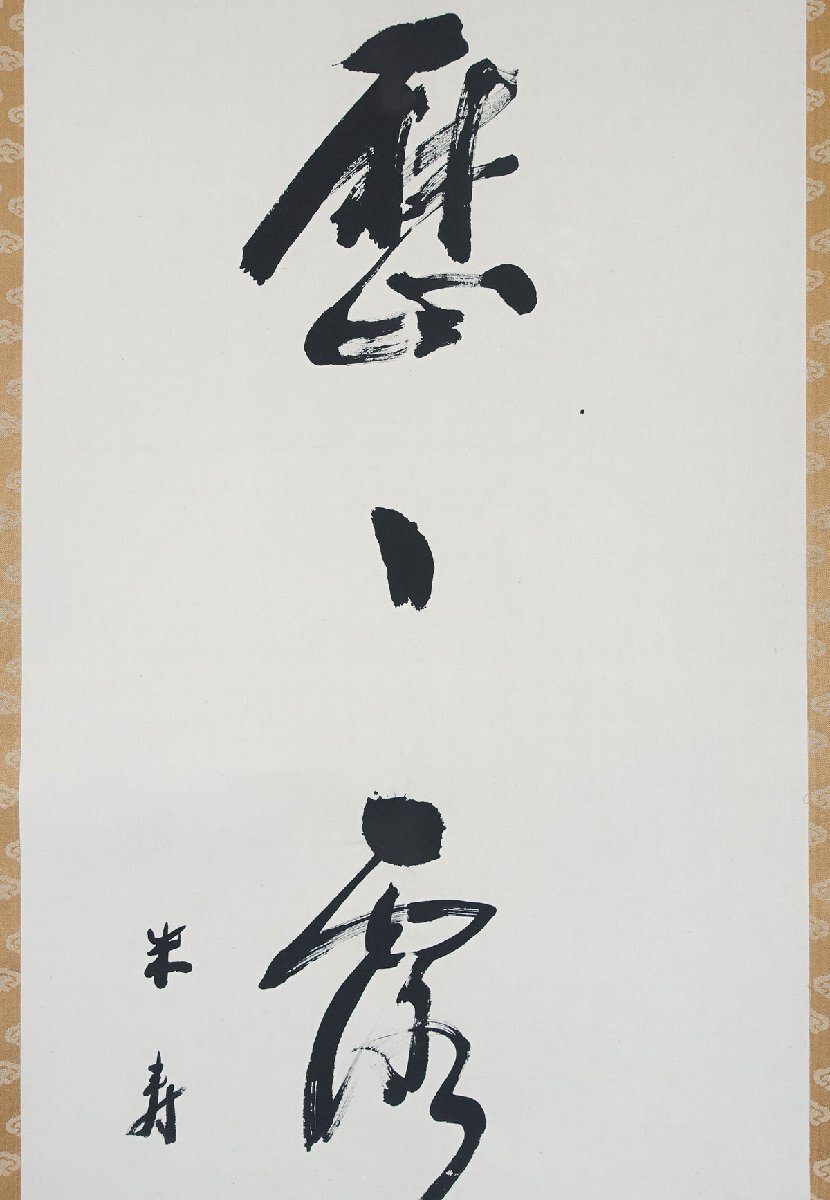 歴々露
米寿